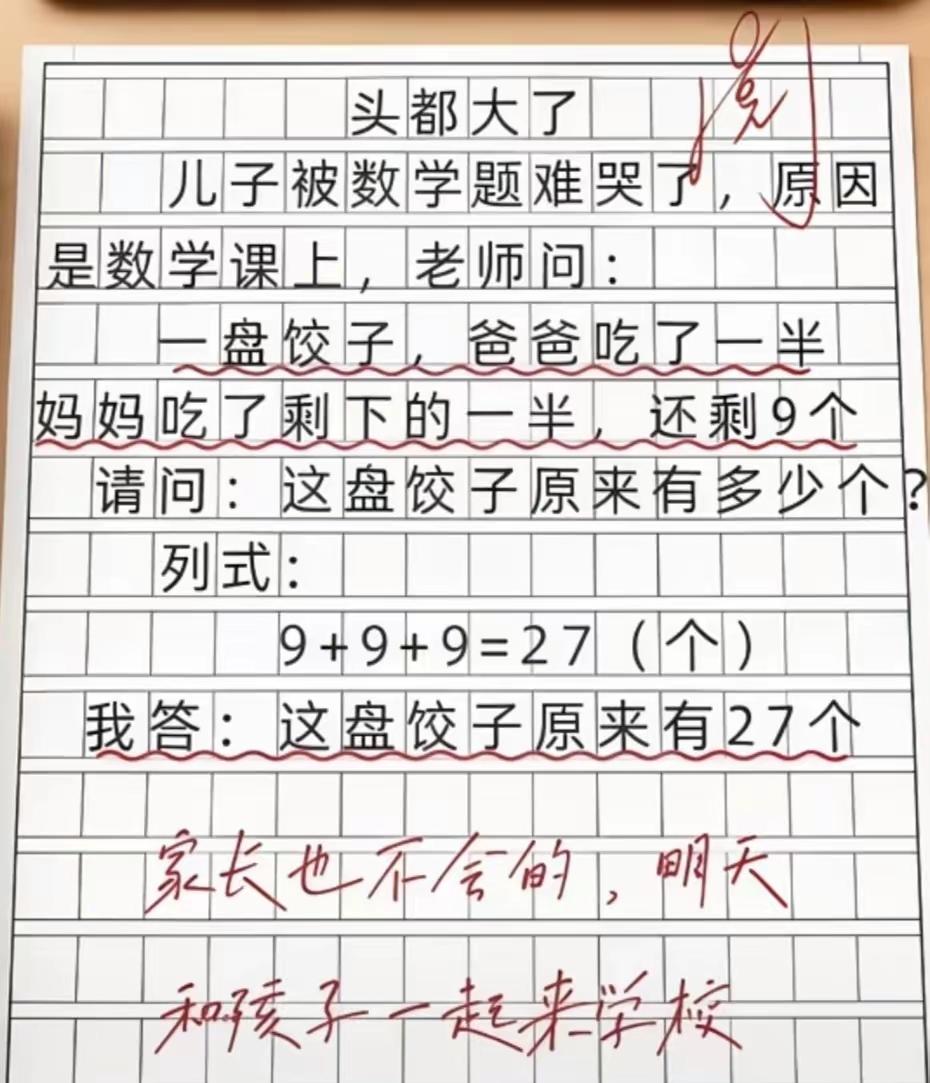 阅
头都大了
儿子被数学题难哭了，原因
是数学课上，老师问：
一盘饺子，爸爸吃了一半
妈妈吃了剩下的一半，还剩9个
请问：这盘饺子原来有多少个？
列式：
9+9+9=27（个）
我答：这盘饺子原来有27个
家长也不会的，明天
和孩子一起来学校